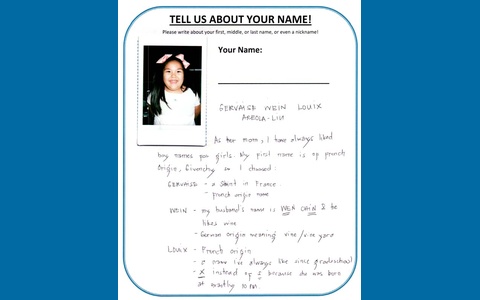 TELL US ABOUT YOUR NAME!
Please write about your first, middle, or last name, or even a nickname!
Your Name:
GERVAISE WEIN LOUIX
AREOLA-LIU
As her mom, I have always liked
boy names for girls. My first name is of french
Origin, Givenchy so I choosed:
GERVAISE - a Saint in France
- french origin name
WEIN - my husband's name is WEN & he
likes wine
- German origin meaning vine/vine yard
LOUIX - French origin
- a name I've always like since gradeschool
- X instead of s because she was born
at exactly 10 AM.